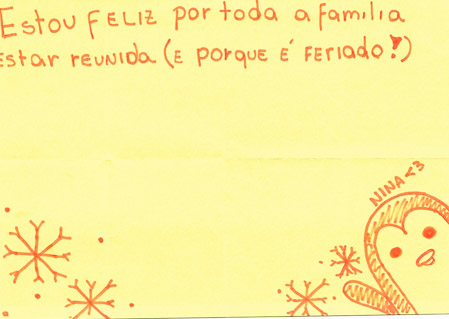 Estou FELIZ por toda a família
estar reunida (E porque é FERIADO!)
NINA <3